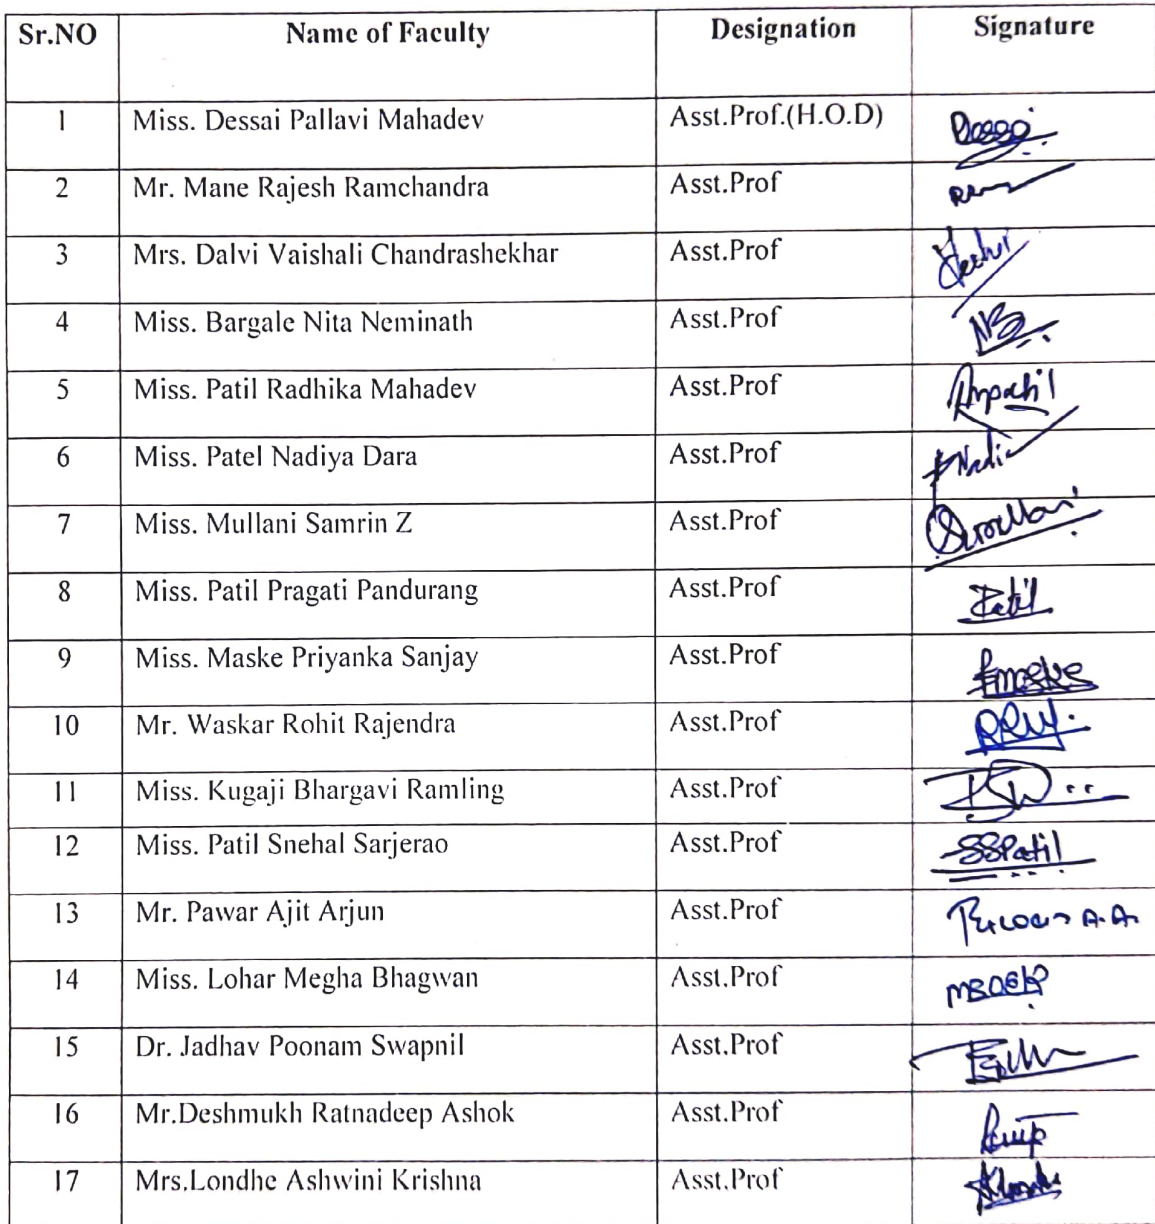 Sr.NO Name of Faculty Designation Signature
1 Miss. Dessai Pallavi Mahadev Asst.Prof.(H.O.D)
2 Mr. Mane Rajesh Ramchandra Asst.Prof
3 Mrs. Dalvi Vaishali Chandrashekhar Asst.Prof
4 Miss. Bargale Nita Neminath Asst.Prof NB
5 Miss. Patil Radhika Mahadev Asst.Prof Rmpatil
6 Miss. Patel Nadiya Dara Asst.Prof
7 Miss. Mullani Samrin Z Asst.Prof
8 Miss. Patil Pragati Pandurang Asst.Prof Patil
9 Miss. Maske Priyanka Sanjay Asst.Prof Pmaske
10 Mr. Waskar Rohit Rajendra Asst.Prof RRW.
11 Miss. Kugaji Bhargavi Ramling Asst.Prof
12 Miss. Patil Snehal Sarjerao Asst.Prof SSPatil
13 Mr. Pawar Ajit Arjun Asst.Prof Pawar A.A.
14 Miss. Lohar Megha Bhagwan Asst.Prof
15 Dr. Jadhav Poonam Swapnil Asst.Prof
16 Mr.Deshmukh Ratnadeep Ashok Asst.Prof
17 Mrs.Londhe Ashwini Krishna Asst.Prof